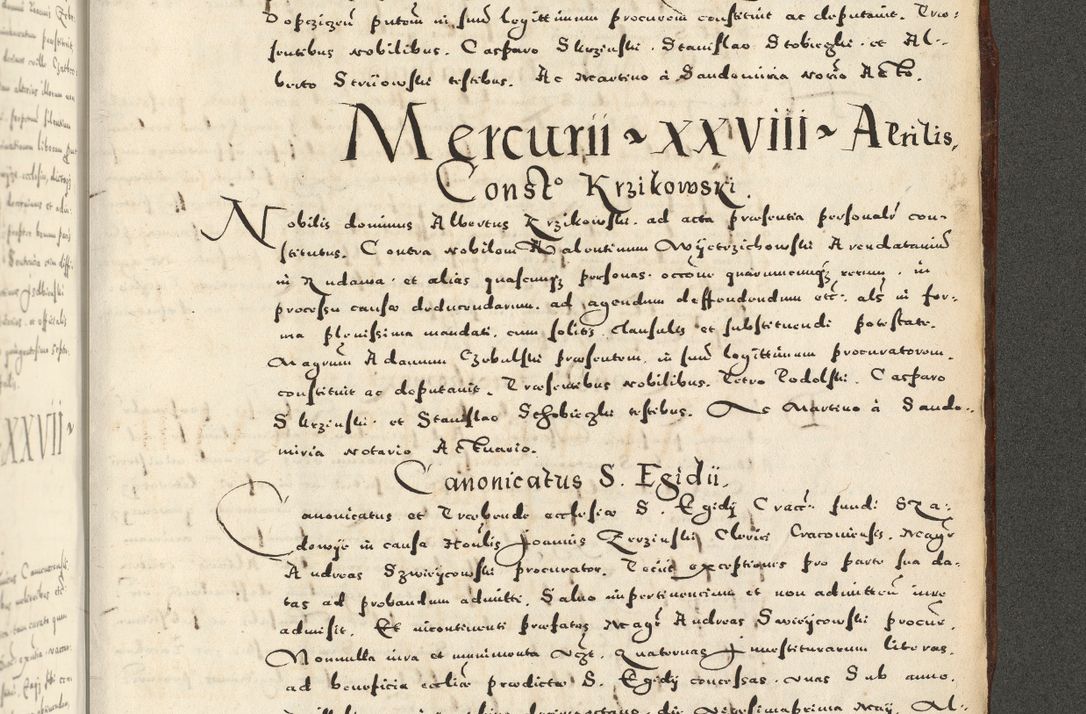 Dopcziczeń putom in suum legittimum procurem constituit ac deputauit. Præ-
sentibus nobilibus. Casparo Skrzinski. Stanislao Stobieczki. et Al-
berto Strijowski testibus. Ac Martino à Sandomiria Norio Acto.
Mercurii ~ XXVIII ~ Aprilis,
Consto Krzikowski.
Nobilis dominus Albertus Krzikowski. ad acta præsentia personalr con-
stitutus. Contra nobilem Valentinum Wijetrzichowski Arendatarium
in Rudawa. et alias quascunqz personas. occone quarumcunqz rerum. in
processu causæ deducendarum. ad agendum deffendendum etc. als in for-
ma plenissima mandati. cum solitis clausulis et substituendi potestate.
Magrum Adamum Czebulski præsentem. in suum legittimum procuratorem.
constituit ac deputauit. Præsentibus nobilibus. Petro Podolski. Casparo
Skrzinski. et Stanislao Schobieczki testibus. Ac Martino à Sando-
miria Notario Actuario.
Canonicatus S. Egidii.
Canonicatus et Præbende ecclesiæ S. Egidij Craco. fundi Sza-
dowije in causa Honlis Joannis Rerzinski Clerici Cracouiensis. Magr
Andreas Szwirijcowski procurator. Petiit exceptiones pro parte sua da-
tas ad probandum admitti. Saluo impertinencium et non admitteń iure
admisit. Et incontinenti præfatus Magr Andreas Swirijcowski procur.
Nonnulla iura et munimenta vizt. quaternas Inuestiturarum literas.
ad beneficia eccliæ prædictæ S. Egidij concessas. vnas Sub anno.